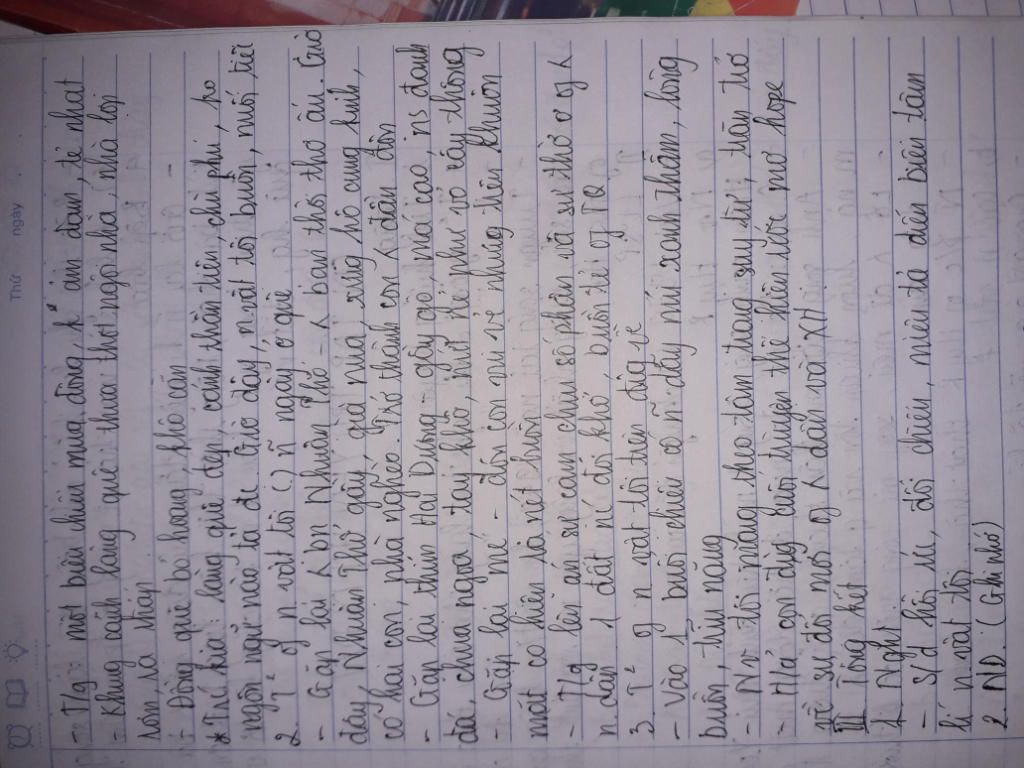 Thứ ngày
- T/g: một biểu chiều mùa đông, k ấm đạm, tẻ nhạt
- Khung cảnh làng quê thưa thớt ngôi nhà, nhà lợp
tôn, lá thấp
- Đồng quê bỏ hoang, khô cằn
* Trí kia: làng quê đẹp, cánh thần tiên, chi phí,
ngôn ngữ nào tả đc. Giờ đây, n.vật tôi buồn, nuối tiếc
2. T² of n vật tôi () ~ ngày ở quê
- Gặp lại bn Nhuận Thổ - bạn thời thơ ấu. Giờ
đây, Nhuận Thổ gầy, già nua, xưng hô cung kính,
có hai con, nhà nghèo. Trở thành con đần độn
- Gặp lại thím Hai Dương - gầy gò, má cao, ns đanh
đá, chua ngoa, tay khô, nứt nẻ
- Gặp lại mẹ - đón con vui vẻ nhưng trên khuôn
mặt có hiện rõ nét buồn
- T/g lên án sự cam chịu số phận và sự thờ ơ of
n dân 1 đất nc đói khổ buồn tẻ of TQ
3. T² of n vật tôi trên đg về
- Vào 1 buổi chiều có ~ dãy núi xanh thẫm, lòng
buồn, trĩu nặng
- N.v tôi mang theo tâm trạng suy tư, trăn trở
- H/a con đg cuối truyện thể hiện ước mơ hope
về sự đổi mới of dân và XH
III Tổng kết
1. Nght
- S/d hồi ức, đối chiếu, miêu tả diễn biến tâm
lí n vật tôi
2. ND. (Ghi nhớ)